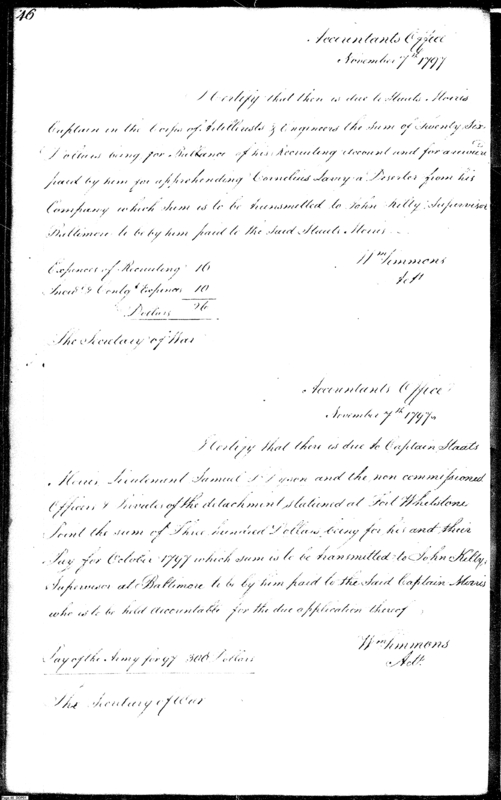 46
Accountants Office
November 7th 1797
I Certify that there is due to Staats Morris
Captain in the Corps of Artillerists & Engineers the sum of Twenty Six
Dollars being for Ballance of his Recruiting account and for a reward
paid by him for apprehending Cornelius Lavry a Deserter from his
Company which sum is to be transmitted to John Kelty Supervisor
Baltimore to be by him paid to the said Staats Morris
Expences of Recruiting 16
Incidl & Contgt Expences 10
Dollars 26
Wm Simmons
Actt
The Secretary of War
Accountants Office
November 7th 1797
I Certify that there is due to Captain Staats
Morris Lieutenant Samuel T Dyson and the non commissioned
Officers & Privates of the detachment stationed at Fort Whetstone
Point the sum of Three hundred Dollars being for his and their
Pay for October 1797 which sum is to be transmitted to John Kelty
Supervisor at Baltimore to be by him paid to the said Captain Morris
who is to be held accountable for the due application thereof
Wm Simmons
Actt
Pay of the Army for 97 300 Dollars
The Secretary of War